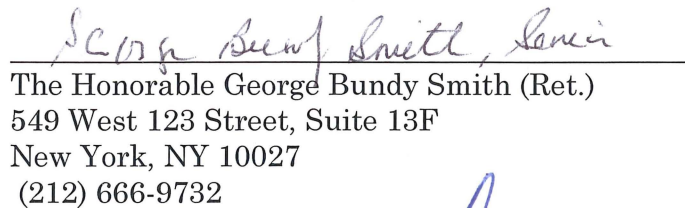 George Bundy Smith, Senior
The Honorable George Bundy Smith (Ret.)
549 West 123 Street, Suite 13F
New York, NY 10027
(212) 666-9732